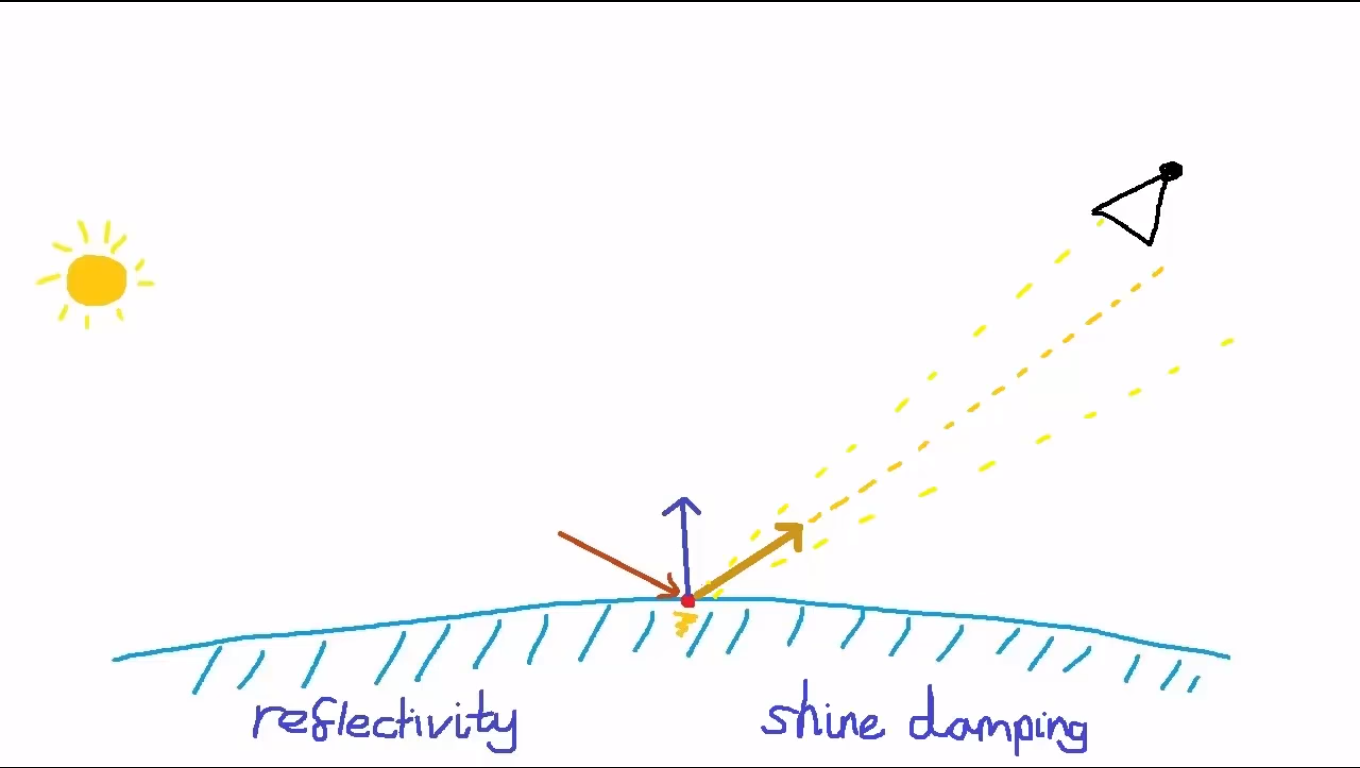 reflectivity
shine damping